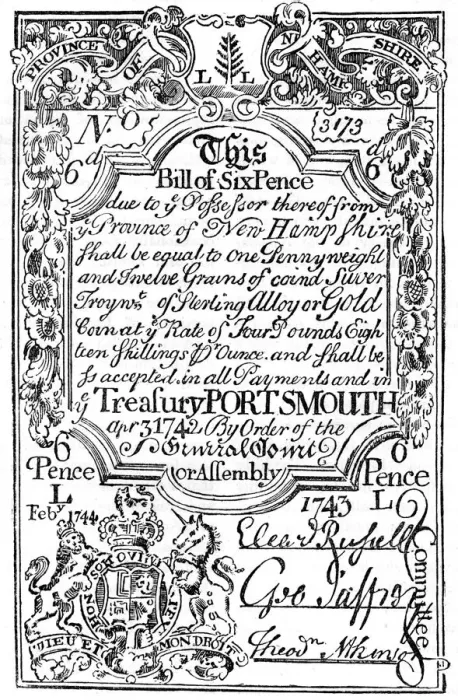 PROVINCE OF N. HAMP SHIRE
L L
No. 3173
6d 6d
This
Bill of Six Pence
due to ye Possessor thereof from
ye Province of New Hampshire
shall be equal to one Pennyweight
and Twelve Grains of coind Silver
Troywt. of Sterling Alloy or Gold
Coin at ye Rate of Four Pounds Eigh
teen Shillings Pr Ounce. and shall be
so accepted in all Payments and in
ye Treasury PORTSMOUTH
Apr 3 1742 By Order of the
General Court
or Assembly
6 Pence L
6 Pence L
Feby. 1744
1743
HONI SOIT QUI MAL Y PENSE
DIEU ET MON DROIT
Eleazr Russell
Geo Jaffrey
Theodr Atkinson
Committee